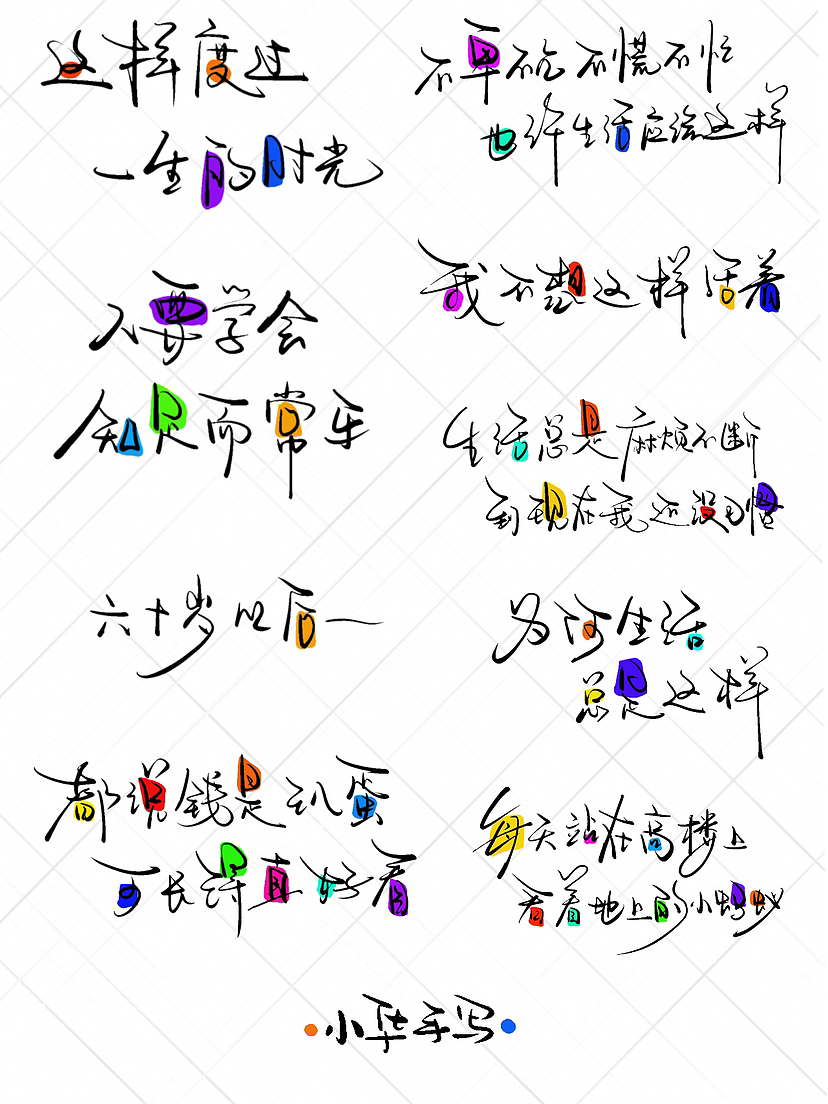 这样度过
一生的时光
人要学会
知足而常乐
六十岁以后一
都说钱是王八蛋
可长得真好看
不卑不亢 不慌不忙
也许生活应该这样
我不想这样活着
生活总是麻烦不断
到现在我还没习惯
为何生活
总是这样
每天站在高楼上
看着地上的小蚂蚁
小华手写